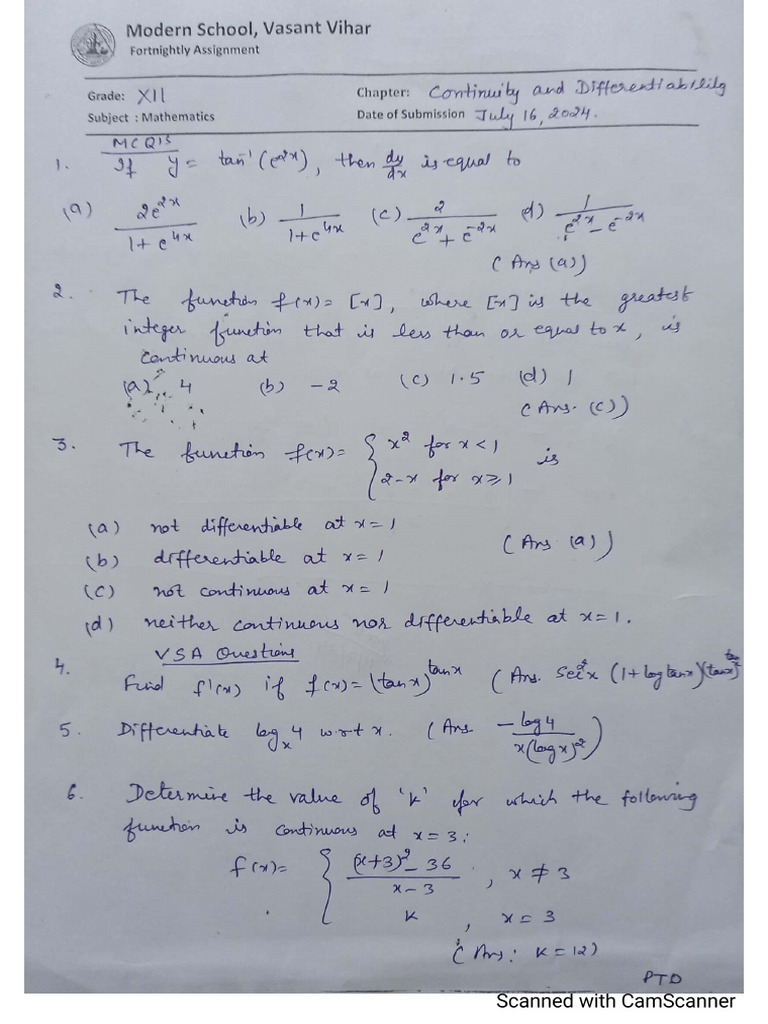 Modern School, Vasant Vihar
Fortnightly Assignment
Grade: XII
Chapter: Continuity and Differentiability
Subject : Mathematics
Date of Submission July 16, 2024.
MCQ's
1. If y = tan⁻¹(e^2x), then dy/dx is equal to
(a) 2e^2x / 1+e^4x (b) 1 / 1+e^4x (c) 2 / e^2x + e^-2x (d) 1 / e^2x - e^-2x
(Ans (a))
2. The function f(x) = [x], where [x] is the greatest
integer function that is less than or equal to x, is
continuous at
(a) 4 (b) -2 (c) 1.5 (d) 1
(Ans. (c))
3. The function f(x) = { x² for x < 1
2-x for x ≥ 1 is
(a) not differentiable at x = 1
(Ans (a))
(b) differentiable at x = 1
(c) not continuous at x = 1
(d) neither continuous nor differentiable at x = 1.
VSA Questions
4. Find f'(x) if f(x) = (tan x)^tan x (Ans. sec²x (1+log tan x)(tan x)^tan x
5. Differentiate log_x 4 w.r.t x. (Ans -log 4 / x(log x)²)
6. Determine the value of 'k' for which the following
function is continuous at x = 3:
f(x) = { (x+3)² - 36 / x-3 , x ≠ 3
k , x = 3
(Ans: k = 12)
PTO
Scanned with CamScanner